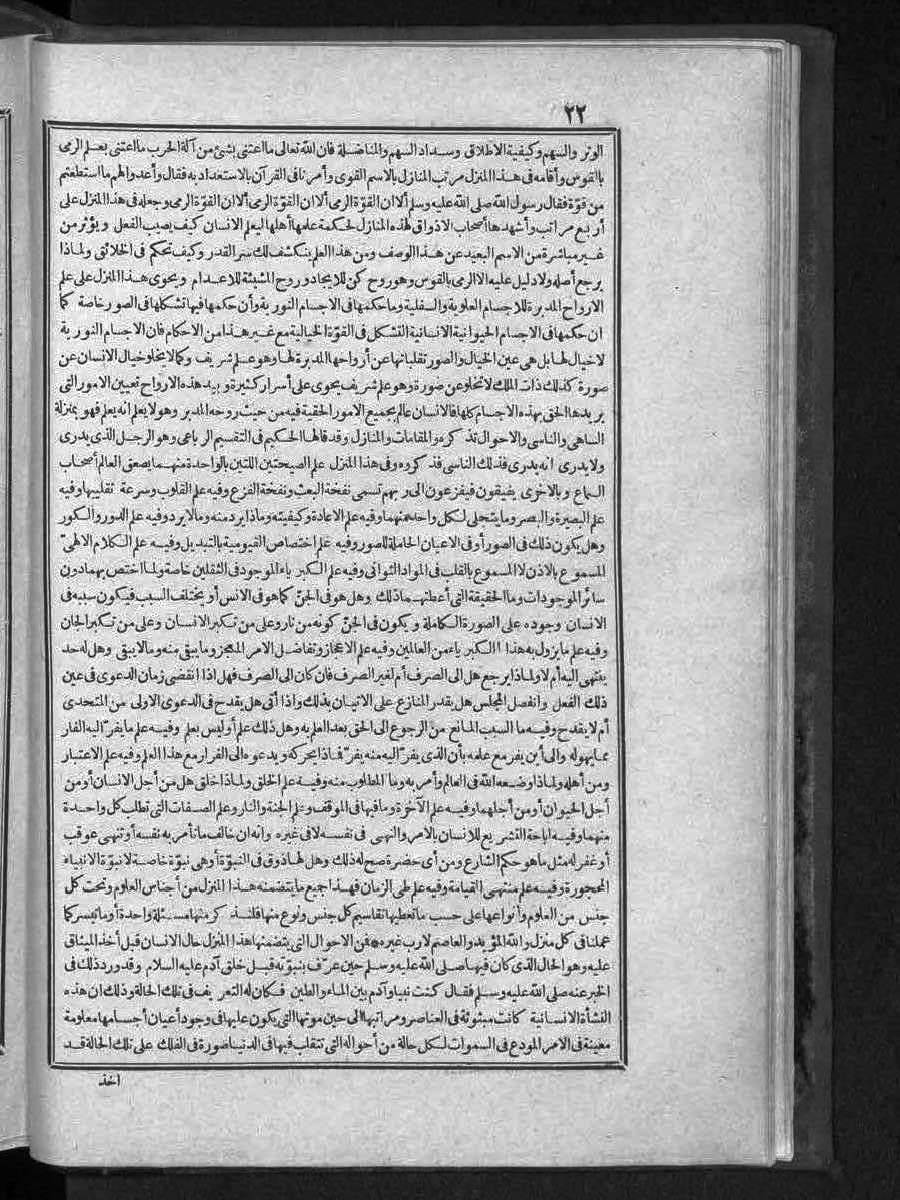 ٢٢
الوتر والسهم وكيفية الاطلاق وسداد السهم والمناضلة فان الله تعالى ما اعتنى بشئ من آلة الحرب ما اعتنى بعلم الرمى
بالقوس وأقامه فى هذا المنزل مرتب المنازل بالاسم القوى وأمرنا فى القرآن بالاستعداد به فقال وأعدوا لهم ما استطعتم
من قوّة فقال رسول الله صلى الله عليه وسلم ألا ان القوّة الرمى ألا ان القوّة الرمى ألا ان القوّة الرمى وجعله فى هذا المنزل على
أربع مراتب وأشهدها أصحاب الاذواق لهذه المنازل لحكمة علمها أهلها ليعلم الانسان كيف يصيب الفعل ويؤثر من
غير مباشرة من الاسم البعيد عن هذا الوصف ومن هذا العلم ينكشف لك سر القدر وكيف تحكم فى الخلائق ولماذا
يرجع أصله ولا دليل عليه الا الرمى بالقوس وهو روح كن للايجاد وروح المشيئة للاعدام ويحوى هذا المنزل على علم
الارواح المدبرة للاجسام العلوية والسفلية وما حكمها فى الاجسام النورية وأن حكمها فيها تشكلها فى الصور خاصة كما
ان حكمها فى الاجسام الحيوانية الانسانية التشكل فى القوّة الخيالية مع غير هذا من الاحكام فان الاجسام النورية
لا خيال لها بل هى عين الخيال والصور تقلباتها عن أرواحها المدبرة لها وهو علم شريف وكما لا يخلو خيال الانسان عن
صورة كذلك ذات الملك لا تخلو عن صورة وهو علم شريف يحوى على أسرار كثيرة وبيد هذه الارواح تعيين الامور التى
يريدها الحق بهذه الاجسام كلها فالانسان عالم بجميع الامور الحقية فيه من حيث روحه المدبر وهو لا يعلم انه يعلم فهو بمنزلة
الساهى والناسى والاحوال تذكره والمقامات والمنازل وقد قالها الحكيم فى التقسيم الرباعى وهو الرجل الذى يدرى
ولا يدرى انه يدرى فذلك الناسى فذكروه وفى هذا المنزل علم الصيحتين اللتين بالواحدة منهما يصعق العالم أصحاب
السماع وبالاخرى يفيقون فيفزعون الى ربهم تسمى نفخة البعث ونفخة الفزع وفيه علم القلوب وسرعة تقليبها وفيه
علم البصيرة والبصر وما يتجلى لكل واحد منهما وفيه علم الاعادة وكيفيته وماذا يرد منه وما لا يرد وفيه علم الدور والكور
وهل يكون ذلك فى الصور أو فى الاعيان الحاملة للصور وفيه علم اختصاص القيومية بالتبديل وفيه علم الكلام الالهىّ
المسموع بالاذن لا المسموع بالقلب فى المواد الثوانى وفيه علم الكبرياء الموجود فى الثقلين خاصة ولما اختص بهما دون
سائر الموجودات وما الحقيقة التى أعطتهما ذلك وهل هو فى الجنّ كما هو فى الانس أو يختلف السبب فيكون سببه فى
الانسان وجوده على الصورة الكاملة ويكون فى الجنّ كونه من نار وعلى من تكبر الانسان وعلى من تكبر الجان
وفيه علم ما يزول به هذا الكبرياء من العالمين وفيه علم الاعجاز وتفاضل الامر المعجز وما يبقى منه وما لا يبقى وهل له حد
ينتهى اليه أم لا ولماذا يرجع هل الى الصرف أم لغير الصرف فان كان الى الصرف فهل اذا انقضى زمان الدعوى فى عين
ذلك الفعل وانفصل المجلس هل يقدر المنازع على الاتيان بذلك واذا أتى هل يقدح فى الدعوى الاولى من المتحدى
أم لا يقدح وفيه ما السبب المانع من الرجوع الى الحق بعد العلم به وهل ذلك علم أو ليس بعلم وفيه علم ما يفرّ اليه الفار
مما يهوله والى أين يفر مع علمه بأن الذى يفرّ اليه منه يفرّ فاذا يحركه ويدعوه الى الفرار مع هذا العلم وفيه علم الاعتبار
ومن أهله ولماذا وضعه الله فى العالم وأمر به وما المطلوب منه وفيه علم الخلق ولماذا خلق هل من أجل الانسان أو من
أجل الحيوان أو من أجلهما وفيه علم الآخرة وما فيها فى الموقف وعلم الجنة والنار وعلم الصفات التى تطلب كل واحدة
منهما وفيه اباحة التشريع للانسان بالامر والنهى فى نفسه لا فى غيره وانه ان خالف ما تأمر به نفسه أو تنهى عوقب
أو غفر له مثل ما هو حكم الشارع ومن أى حضرة صح له ذلك وهل لهذا ذوق فى النبوّة أو هى نبوّة خاصة لا نبوّة الانبياء
المحجورة وفيه علم منتهى القيامة وفيه علم طى الزمان فهذا جميع ما يتضمنه هذا المنزل من أجناس العلوم وتحت كل
جنس من العلوم وأنواعها على حسب ما تعطيها تقاسيم كل جنس ونوع منها فلنذكر منها مسئلة واحدة أو ما تيسر كما
عملنا فى كل منزل والله المؤيد والعاصم لا رب غيره * فمن الاحوال التى يتضمنها هذا المنزل حال الانسان قبل أخذ الميثاق
عليه وهو الحال الذى كان فيها صلى الله عليه وسلم حين عرّف بنبوّته قبل خلق آدم عليه السلام وقد ورد ذلك فى
الخبر عنه صلى الله عليه وسلم فقال كنت نبيا وآدم بين الماء والطين فكان له التعريف فى تلك الحالة وذلك ان هذه
النشأة الانسانية كانت مبثوثة فى العناصر ومراتبها الى حين موتها التى يكون عليها فى وجود أعيان أجسامها معلومة
معينة فى الامر المودع فى السموات لكل حالة من أحواله التى تتقلب فيها فى الدنيا صورة فى الفلك على تلك الحالة قد
أخذ